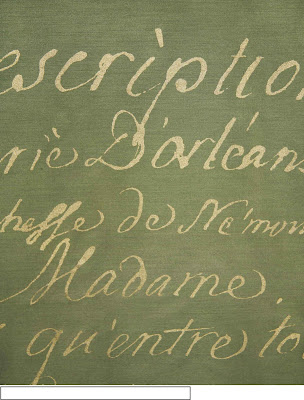 escription
rie D'orléans
chesse de Némour
Madame.
qu'entre to